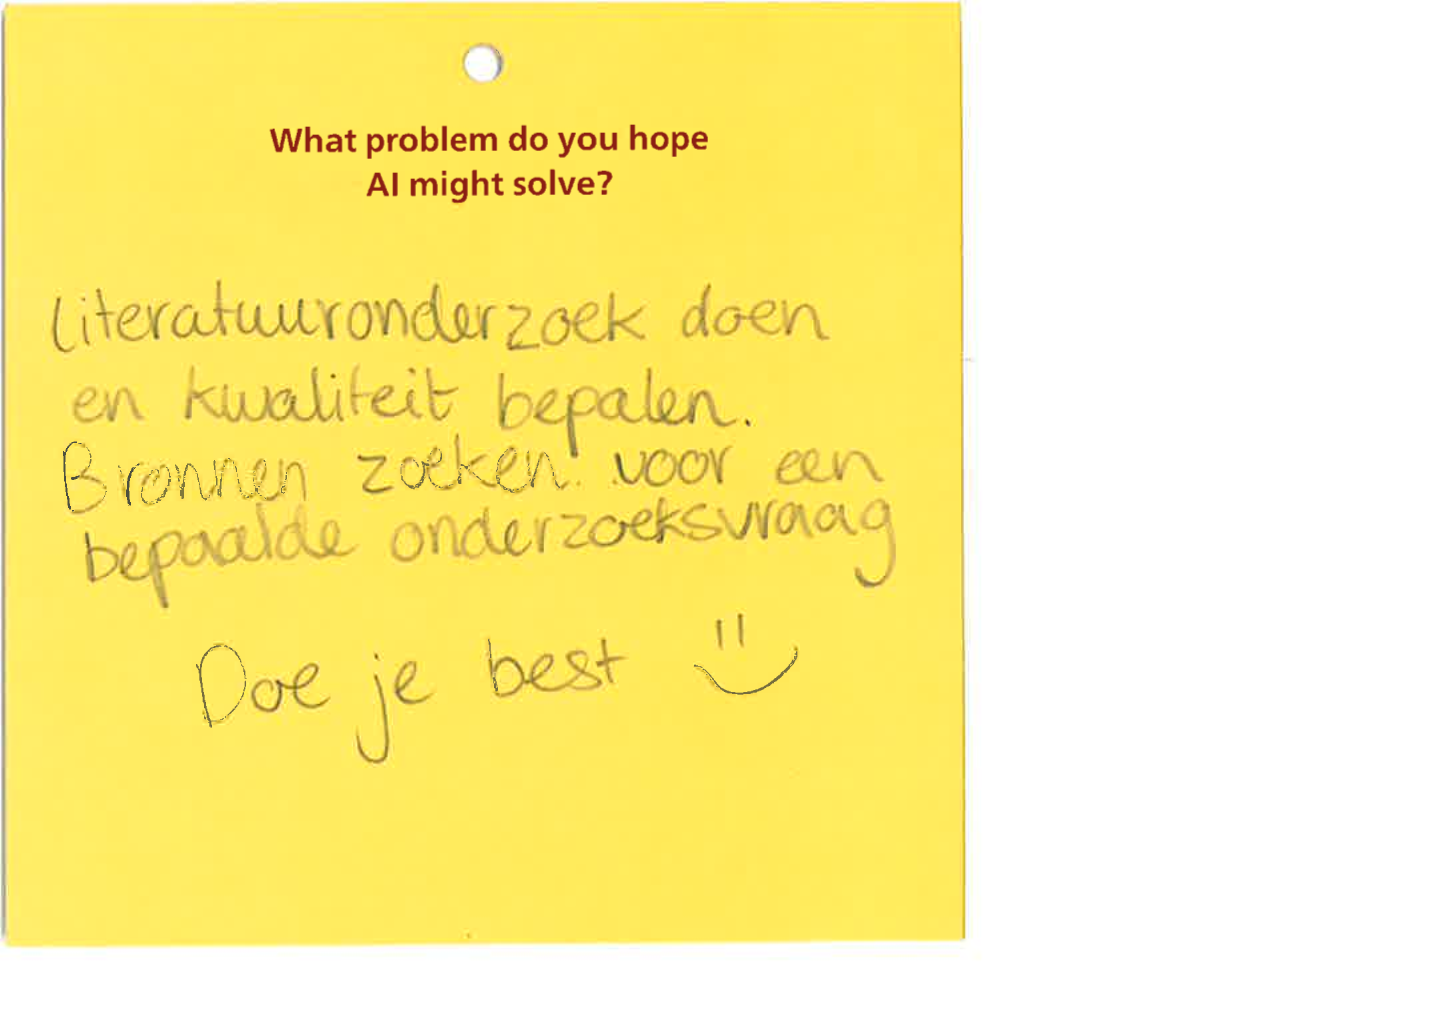 What problem do you hope
AI might solve?
Literatuuronderzoek doen
en kwaliteit bepalen.
Bronnen zoeken voor een
bepaalde onderzoeksvraag
Doe je best